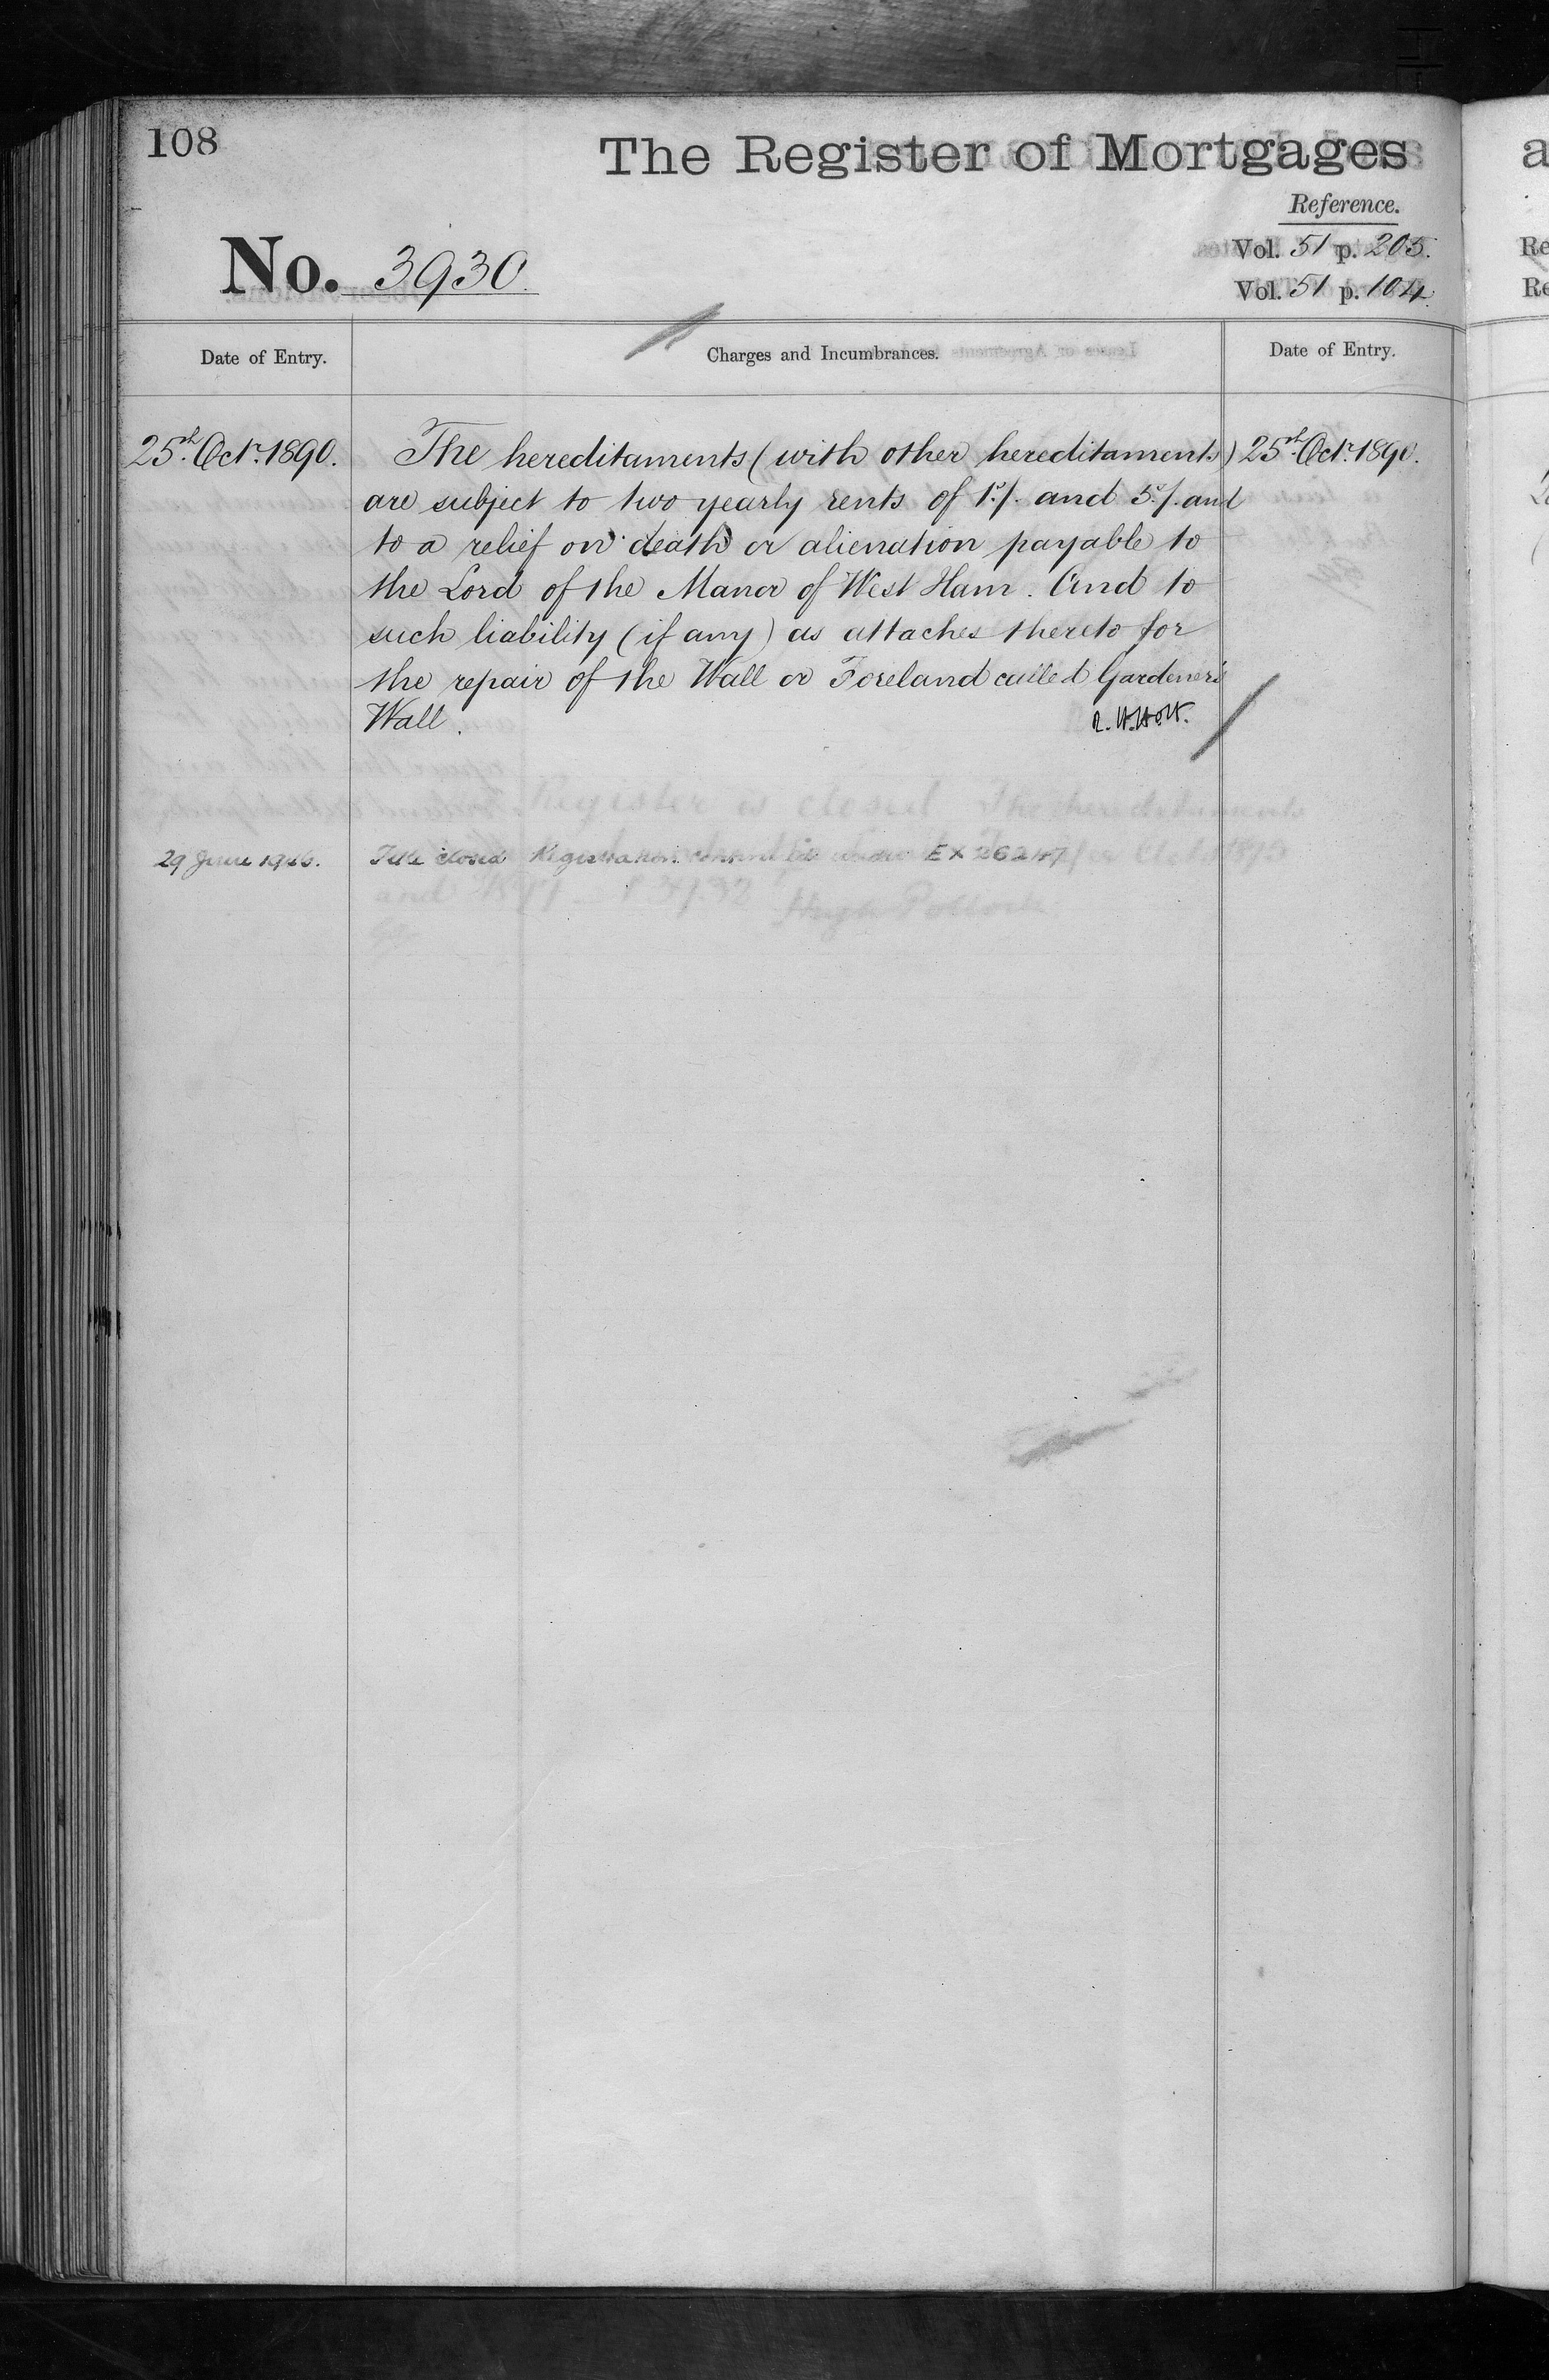 108
The Register of Mortgages
Reference.
No. 3930.
Vol. 51 p. 205.
Vol. 51 p. 104.
Date of Entry.
Charges and Incumbrances.
Date of Entry.
25th Octr. 1890.
The hereditaments (with other hereditaments)
are subject to two yearly rents of 1s/. and 5s/. and
to a relief on death or alienation payable to
the Lord of the Manor of West Ham. And to
such liability (if any) as attaches thereto for
the repair of the Wall or Foreland called Gardener's
Wall.
25th Octr. 1890.
R. H. Holt.
Register is closed The hereditaments
29 June 1926.
Title closed Registration EX 26247
and
Hugh Pollock
a
Re
Re